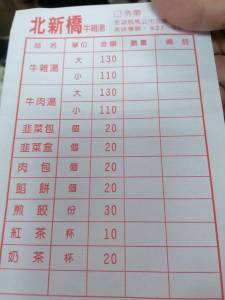 北新橋牛雜湯
□外帶
品名 單位 金額 數量 備註
牛雜湯 大 130
小 110
牛肉湯 大 130
小 110
韭菜包 個 20
韭菜盒 個 20
肉包 個 20
餡餅 個 20
煎餃 份 30
紅茶 杯 10
奶茶 杯 20